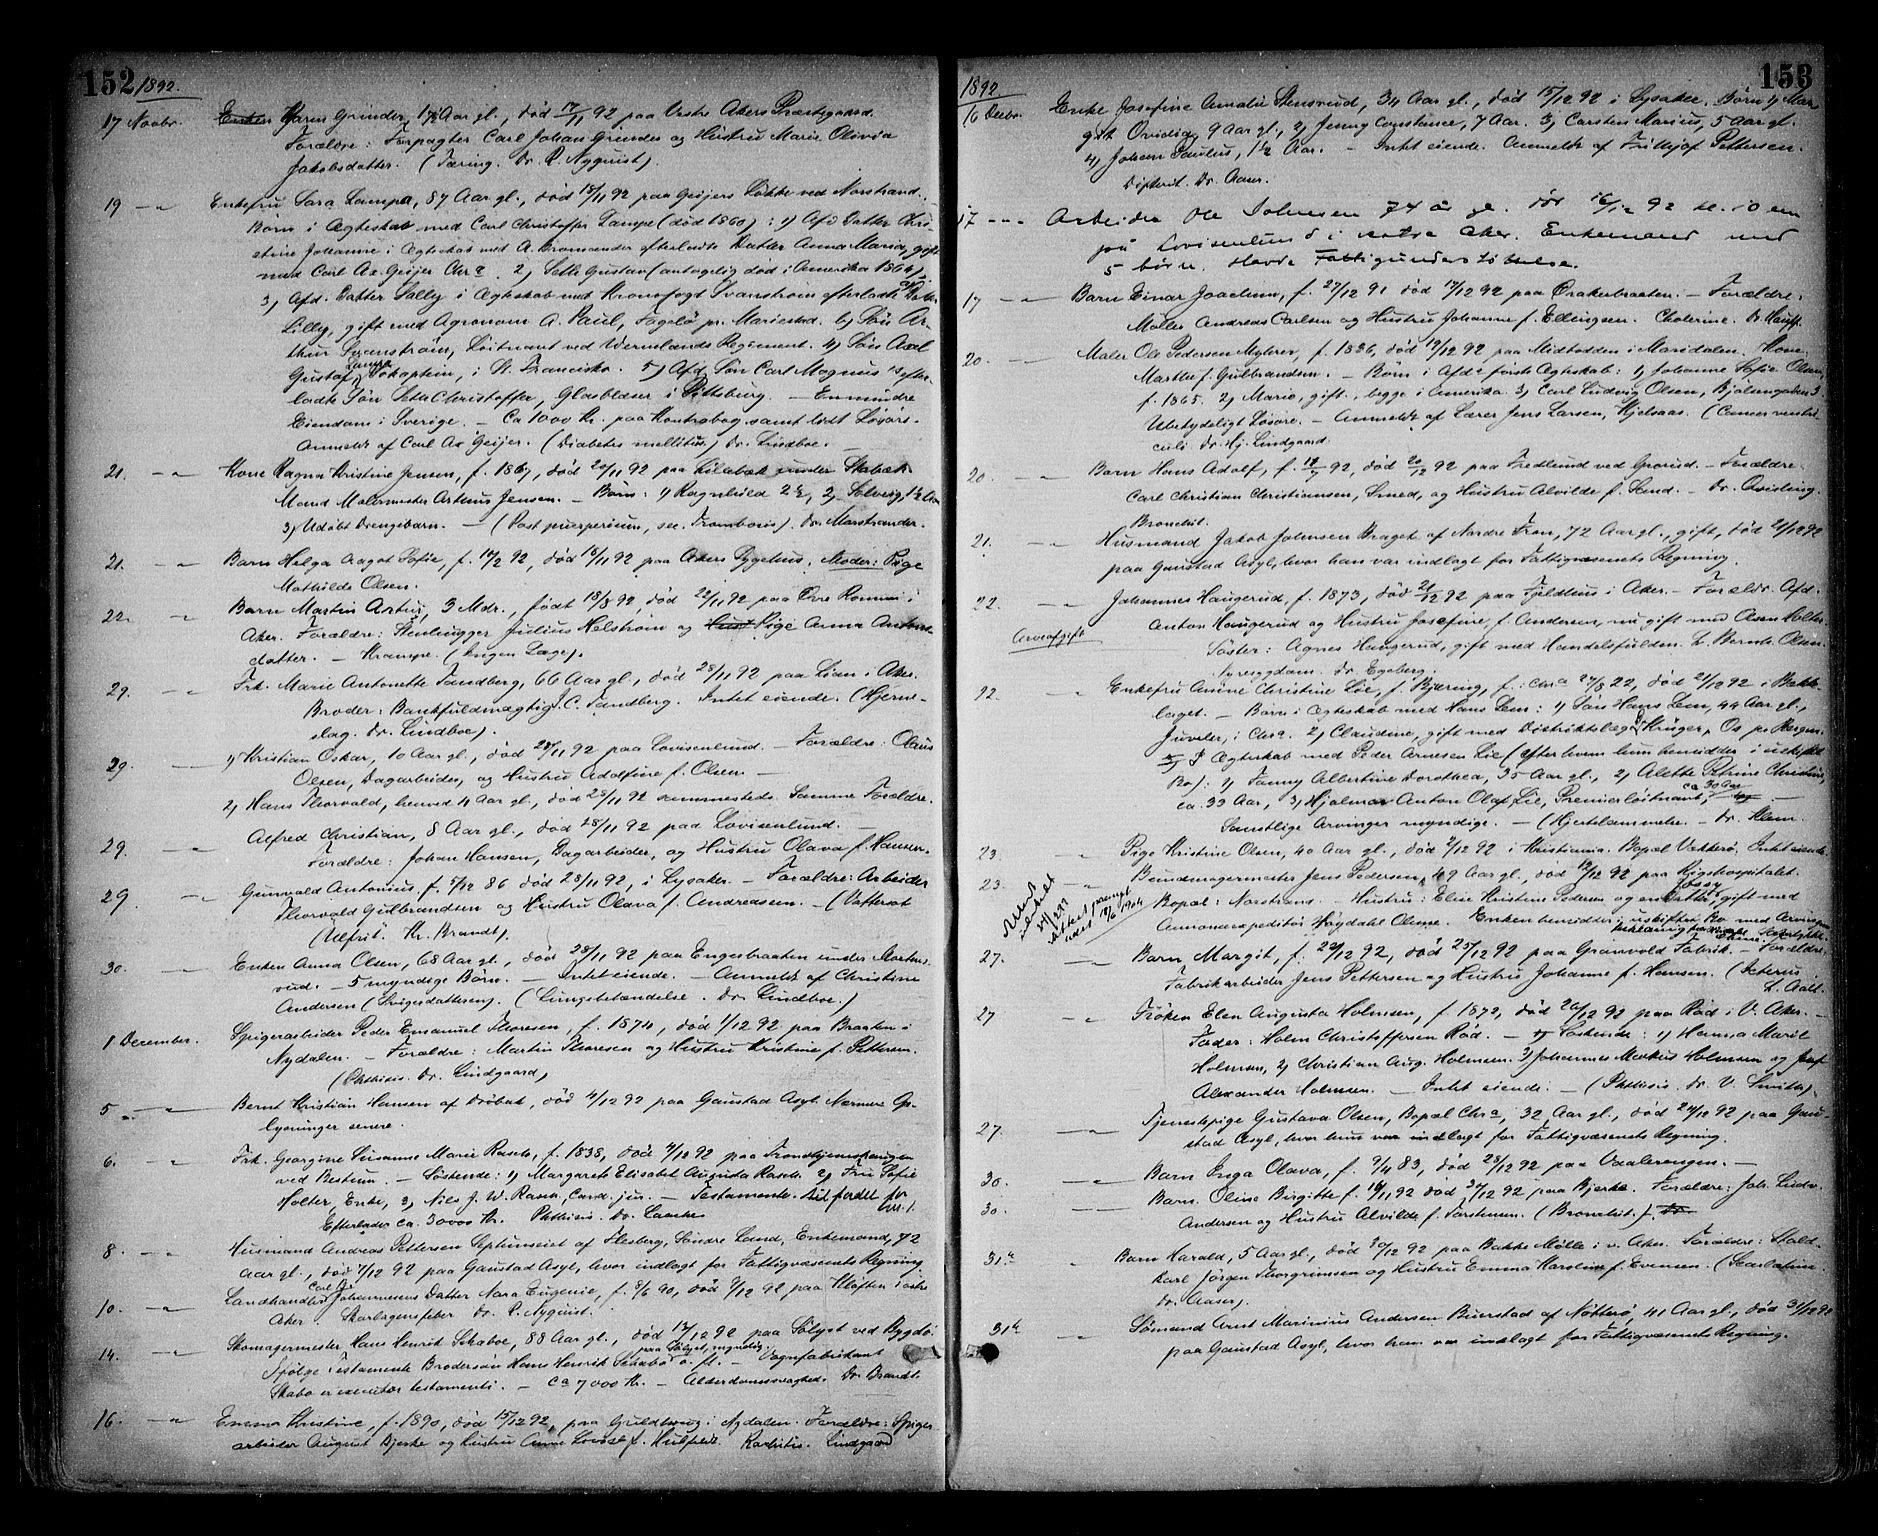 152 1892.
17 Novbr. Enken Karen Grinder, 1½ Aar gl., død 17/11 92 paa Vestre Akers Præstegaard.
Forældre: Forpagter Carl Johan Grinder og Hustru Marie Olivia
Jakobsdatter. (Tæring. Dr. R. Nyquist).
19 -"- Enkefru Sara Lampa, 87 Aar gl., død 15/11 92 paa Geijers Løkke ved Norstrand.
Børn i Ægteskab med Carl Christoffer Lampe (død 1860): 1) Afd. Datter Chri-
stine Johanne i Ægteskab med A. Bromander efterladte Datter Anna Maria, gift
med Carl Ax. Geijer Chra. 2) Seth Gustav (antagelig død i Amerika 1864).
3) Afd. Datter Sally i Ægteskab med Kronofogd Svanström efterladte a) Datter
Lilly, gift med Agronom A. Paul, Fogelö pr. Mariestad. b) Søn Ar-
thur Svanström, Løitnant ved Wermlands Regement. 4) Søn Axel
Gustaf Lampe, Søkaptein, i St. Francisko. 5) Afd. Søn Carl Magnus's efter-
ladte Søn Seth Christoffer, Glasblæser i Pittsburg. — En mindre
Eiendom i Sverige. — Ca 1000 Kr. paa Kontrabog samt lidt Løsøre.
Anmeldt af Carl Ax Geijer. (Diabetes mellitus) Dr. Lindboe.
21. -"- Kone Ragna Kristine Jensen, f. 1867, død 20/11 92 paa Lillebæk under Skabæk.
Mand Malermester Arthur Jensen. — Børn: 1) Ragnhild 2½, 2) Solveig, 1½ Aar
3) Udøbt Drengebarn. — (Post puerperium, sec. Trombosis). Dr. Marstrander.
21. -"- Barn Helga Aagot Sofie, f. 14/2 92, død 18/11 92 paa Akers Sygehus. Moder: Pige
Mathilde Olsen.
22. -"- Barn Martin Artur, 3 Mdr., født 18/8 92, død 22/11 92 paa Øvre Rommen i
Aker. Forældre: Stenhugger Julius Helström og Hust Pige Anna Anders-
datter. — Krampe. (Ingen Læge).
29. -"- Frk. Marie Antonette Sandberg, 66 Aar gl., død 28/11 92 paa Lian i Aker.
Broder: Bankfuldmægtig J. C. Sandberg. Intet eiende. (Hjerne-
slag. Dr. Lindboe).
29. -"- 1) Kristian Oskar, 10 Aar gl., død 28/11 92 paa Lovisenlund. — Forældre: Olaus
Olsen, Dagarbeider, og Hustru Adolfine f. Olsen —
2) Hans Thorvald, henved 4 Aar gl., død 28/11 92 sammesteds. Samme Forældre.
29. -"- Alfred Christian, 8 Aar gl., død 28/11 92 paa Lovisenlund. —
Forældre: Johan Hansen, Dagarbeider, og Hustru Olava f. Hansen.
29. -"- Gunvald Antonius, f. 5/12 86 død 28/11 92, i Lysaker. — Forældre: Arbeider
Thorvald Gulbrandsen og Hustru Olava f. Andreassen. — (Vattersot
(Nefrit. Kr. Brandt).
30. -"- Enken Anna Olsen, 68 Aar gl., død 28/11 92 paa Engesbraaten under Mortens-
rud. — 5 myndige Børn. — Intet eiende. — Anmeldt af Christine
Andersen (Svigerdatteren). (Lungebetændelse. Dr. Lindboe.)
1 December. Spigerarbeider Peder Emanuel Thoresen, f. 1874, død 1/12 92 paa Braaten i
Nydalen. — Forældre: Martin Thoresen og Hustru Kristine f. Pettersen.
(Phthisis. Dr. Lindgaard)
5 -"- Bernt Kristian Hansen af Drøbak, død 4/12 92 paa Gaustad Asyl. Nærmere Op-
lysninger senere.
6. -"- Frk. Georgine Susanne Marie Rasch, f. 1838, død 4/12 92 paa Trondhjemshaugen
ved Bestum. — Søskende: 1) Margarete Elisabet Augusta Rasch. 2) Fru Sofie
Holter, Enke, 3) Nils J. W. Rasch, Cand. jur. — Testamente.
Efterlader ca. 3000 Kr. Phthisis. Dr. Laache
8. -"- Husmand Andreas Pettersen Septunseiet af Flesberg, Søndre Land, Enkemand, 72
aar gl., død 7/12 92 paa Gaustad Asyl, hvor indlagt for Fattigvæsenets Regning.
10. -"- Landhandler Carl Johannesens Datter Nara Eugenie, f. 8/6 90, død 9/12 92, paa Kløften Vestre
Aker. Skarlagensfeber Dr. R. Nyquist.
14. -"- Skomagermester Hans Henrik Schaboe, 88 Aar gl., død 13/12 92 paa Sølyst ved Bygdø.
Ifølge Testamente Brodersøn Hans Henrik Schabo paa Sølyst, myndig o. fl. — Vognfabrikant
Skabo er executor testamenti. — Ca 7000 Kr. — Alderdomssvaghed. Dr Brandt.
16. -"- Emma Kristine, f. 1890, død 15/12 92, paa Guldhaug i Nydalen. Forældre: Spiger-
arbeider August Bjerke og Hustru Anne Lovise f. Hulfeldt. Rachitis. Lindgaard
153
1892
16 Decbr. Enke Josefine Amalie Stensrud, 34 Aar gl., død 15/12 92 i Lysaker. Børn 1) Mar-
grit Ovidia, 9 Aar gl., 2) Jenny Constance, 7 Aar. 3) Carsten Marius, 5 Aar gl.
4) Johan Paulus, 1½ Aar. — Intet eiende. Anmeldt af Fritjof Pettersen.
Difterit. Dr. Aaser.
17 -"- Arbeider Ole Johnsen 74 år gl. død 16/12 92 kl. 10 em
på Lovisenlund i vestre Aker. Enkemand med
5 børn. Havde Fattigunderstøttelse.
17 -"- Barn Einar Joachim, f. 27/12 91 død 17/12 92 paa Øraakerbraaten. — Forældre:
Møller Andreas Carlsen og Hustru Johanne f. Ellingsen. Cholerine. Dr. Hauff.
20. -"- Maler Ole Pedersen Myhrer, f. 1836, død 19/12 92 paa Midtodden i Maridalen. Kone:
Marthe f. Gulbrandsen. — Børn i Afd's første Ægteskab: 1) Johanne Sofie Olsen,
f. 1865. 2) Marie, gift, begge i Amerika. 3) Carl Ludvig Olsen, Bjølsengaden 3.
Ubetydeligt Løsøre. — Anmeldt af Lærer Jens Larsen, Kjelsaas. (Cancer ventri-
culi. Dr. Hj. Lindgaard.
20. -"- Barn Hans Adolf, f. 14/7 92, død 20/12 92 paa Fredlund ved Grorud. — Forældre:
Carl Christian Christiansen, Smed, og Hustru Alvilde f. Lend. — Dr. Qvisling.
Bronchit.
21. -"- Husmand Jakob Johnsen Braget af Nordre Fron, 72 Aar gl., gift, død 21/12 92
paa Gaustad Asyl, hvor han var indlagt for Fattigvæsenets Regning.
22. -"- Johannes Haugerud, f. 1873, død 21/12 92 paa Fjeldhus i Aker. — Forældr. Afd.
Arveafgift Anton Haugerud og Hustru Josefine, f. Andersen, nu gift med Olsen Holter.
Søster: Agnes Haugerud, gift med Handelsfuldm. L. Bernth Olsen.
Dr. Egeberg.
22. -"- Enkefru Anine Christine Lie, f. Bjering, f. i Chra 27/8 22, død 21/12 92 i Bække-
laget. — Børn i Ægteskab med Hans Lem: 1) Søn Hans Lem, 44 Aar gl.,
Juveler, i Chra. 2) Claudine, gift med Distriktslæge Krüger, Os pr. Bergen
I Ægteskab med Peder Arnesen Lie (efter hvem hun hensidder i uskiftet
Bo): 1) Fanny Albertine Dorothea, 35 Aar gl., 2) Alette Petrine Christine,
ca. 33 Aar, 3) Hjalmar Anton Olaf Lie, Premierløitnant, ca 30 Aar
Samtlige Arvinger myndige. — (Hjertelammelse. — Dr. Klem.
23. -"- Pige Kristine Olsen, 40 Aar gl., død 2/12 92 i Kristiania. Bopæl Vækkerø. Intet eiende.
23. -"- Bundmagermester Jens Pedersen, 49 Aar gl., død 19/12 92 paa Rigshospitalet.
Bopæl: Norstrand. — Hustru: Elise Kristine Pedersen og en Datter, gift med
Annonceexpeditør Høgdahl Olsene. Enken hensidder i uskiftet Bo med Arvingen
27. -"- Barn Margit, f. 22/12 92, død 25/12 92 paa Grønvold Fabrik. — Forældre:
Fabrikarbeider Jens Pettersen og Hustru Johanne f. Hansen. (Icterus.
L. Aall.
27 -"- Frøken Elen Augusta Holmsen, f. 1872, død 26/12 92 paa Rød i V. Aker. —
Fader: Holm Christoffersen Rød. — Søskende: 1) Hanna Marie
Holmsen, 2) Christian Aug. Holmsen. 3) Johannes Markus Holmsen og
Alexander Holmsen. — Intet eiende. — (Phthisis. Dr. V. Smith).
27. -"- Tjenestepige Gustava Olsen, Bopæl Chra, 32 Aar gl., død 24/12 92 paa Gau-
stad Asyl, hvor hun var indlagt for Fattigvæsenets Regning.
30. -"- Barn Inga Olava, f. 9/4 83, død 28/12 92 paa Vaalerengen. —
30. -"- Barn Oline Birgitte f. 18/11 92 død 30/12 92 paa Bjerke. Forældre: Joh. Ludv.
Andersen og Hustru Alvilde f. Torstensen. (Bronchit.).
31te " Barn Harald, 5 Aar gl., død 30/12 92 paa Bakke Mølle i v. Aker. Forældre: Stald-
karl Jørgen Thorgrimsen og Hustru Emma Karoline f. Evensen. (Scarlatina.
Dr. Aaser).
31te -"- Sømand Arnt Marinius Andersen Buerstad af Nøtterø, 41 Aar gl., død 31/12 92
paa Gaustad Asyl, hvor han var indlagt for Fattigvæsenets Regning.